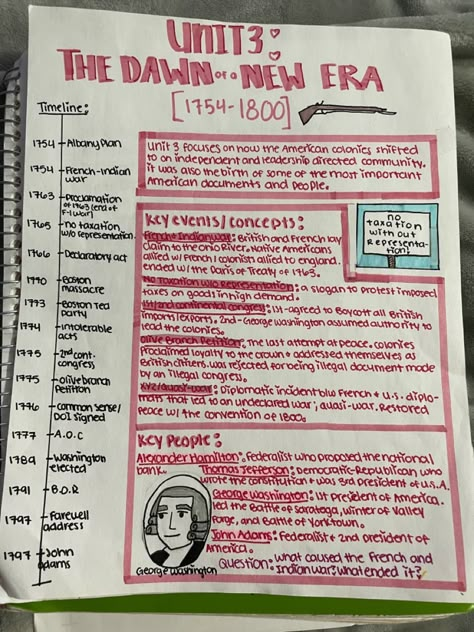 UNIT 3:
THE DAWN of a NEW ERA
[1754-1800]
Timeline:
1754 - Albany Plan
1754 - French-Indian war
1763 - Proclamation of 1763 (end of F-I war)
1765 - no taxation w/o representation
1766 - Declaratory act
1770 - Boston massacre
1773 - Boston tea party
1774 - intolerable acts
1775 - 2nd cont. congress
1775 - olive branch Petition
1776 - common sense/ DOI signed
1777 - A.O.C
1789 - Washington elected
1791 - B.O.R
1797 - Farewell address
1797 - John adams
Unit 3 focuses on how the American colonies shifted
to an independent and leadership directed community.
it was also the birth of some of the most important
American documents and people.
no
taxation
with out
Representa-
tion!
Key events/concepts:
French & Indian war: British and French lay
claim to the onio River. Native Americans
allied w/ French/colonists allied to england.
ended w/ the Paris of Treaty of 1763.
No taxation w/o Representation: a slogan to protest imposed
taxes on goods in high demand.
1st/2nd continental congress: 1st-agreed to Boycott all British
imports/exports. 2nd-George washington assumed authority to
lead the colonies.
olive Branch Petition: the last attempt at peace. colonies
Proclaimed loyalty to the crown + addressed themselves as
British citizens. was rejected for being illegal document made
by an illegal congress.
xyz/quasi-war: Diplomatic incident b/w French + u.s. diplo-
mats that led to an undeclared war; quasi-war. Restored
Peace w/ the convention of 1800.
Key People:
Alexander Hamilton: Federalist who proposed the national
bank.
Thomas Jefferson: Democratic-Republican who
wrote the constitution + was 3rd president of U.S.A.
George Washington: 1st president of America.
led the Battle of Saratoga, winter of Valley
Forge, and Battle of Yorktown.
John Adams: Federalist + 2nd president of
America.
Question: what caused the French and
Indian war? what ended it?
George Washington